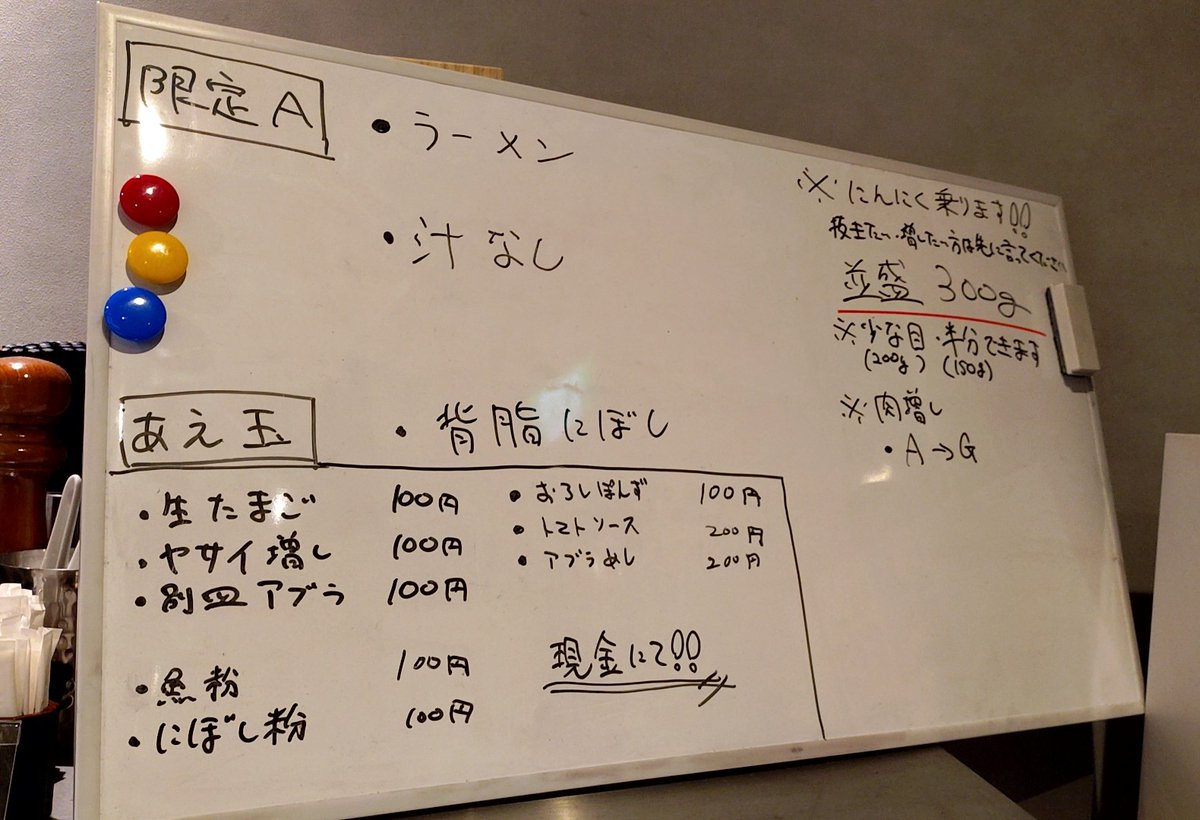 限定A
・ラーメン
・汁なし
※にんにく乗ります!!
抜きたい・増したい方は先に言ってください
並盛 300g
※少な目・半分できます
(200g) (150g)
※肉増し
・A→G
あえ玉
・背脂にぼし
・生たまご 100円
・ヤサイ増し 100円
・別皿アブラ 100円
・魚粉 100円
・にぼし粉 100円
・おろしぽんず 100円
・トマトソース 200円
・アブラめし 200円
現金にて!!